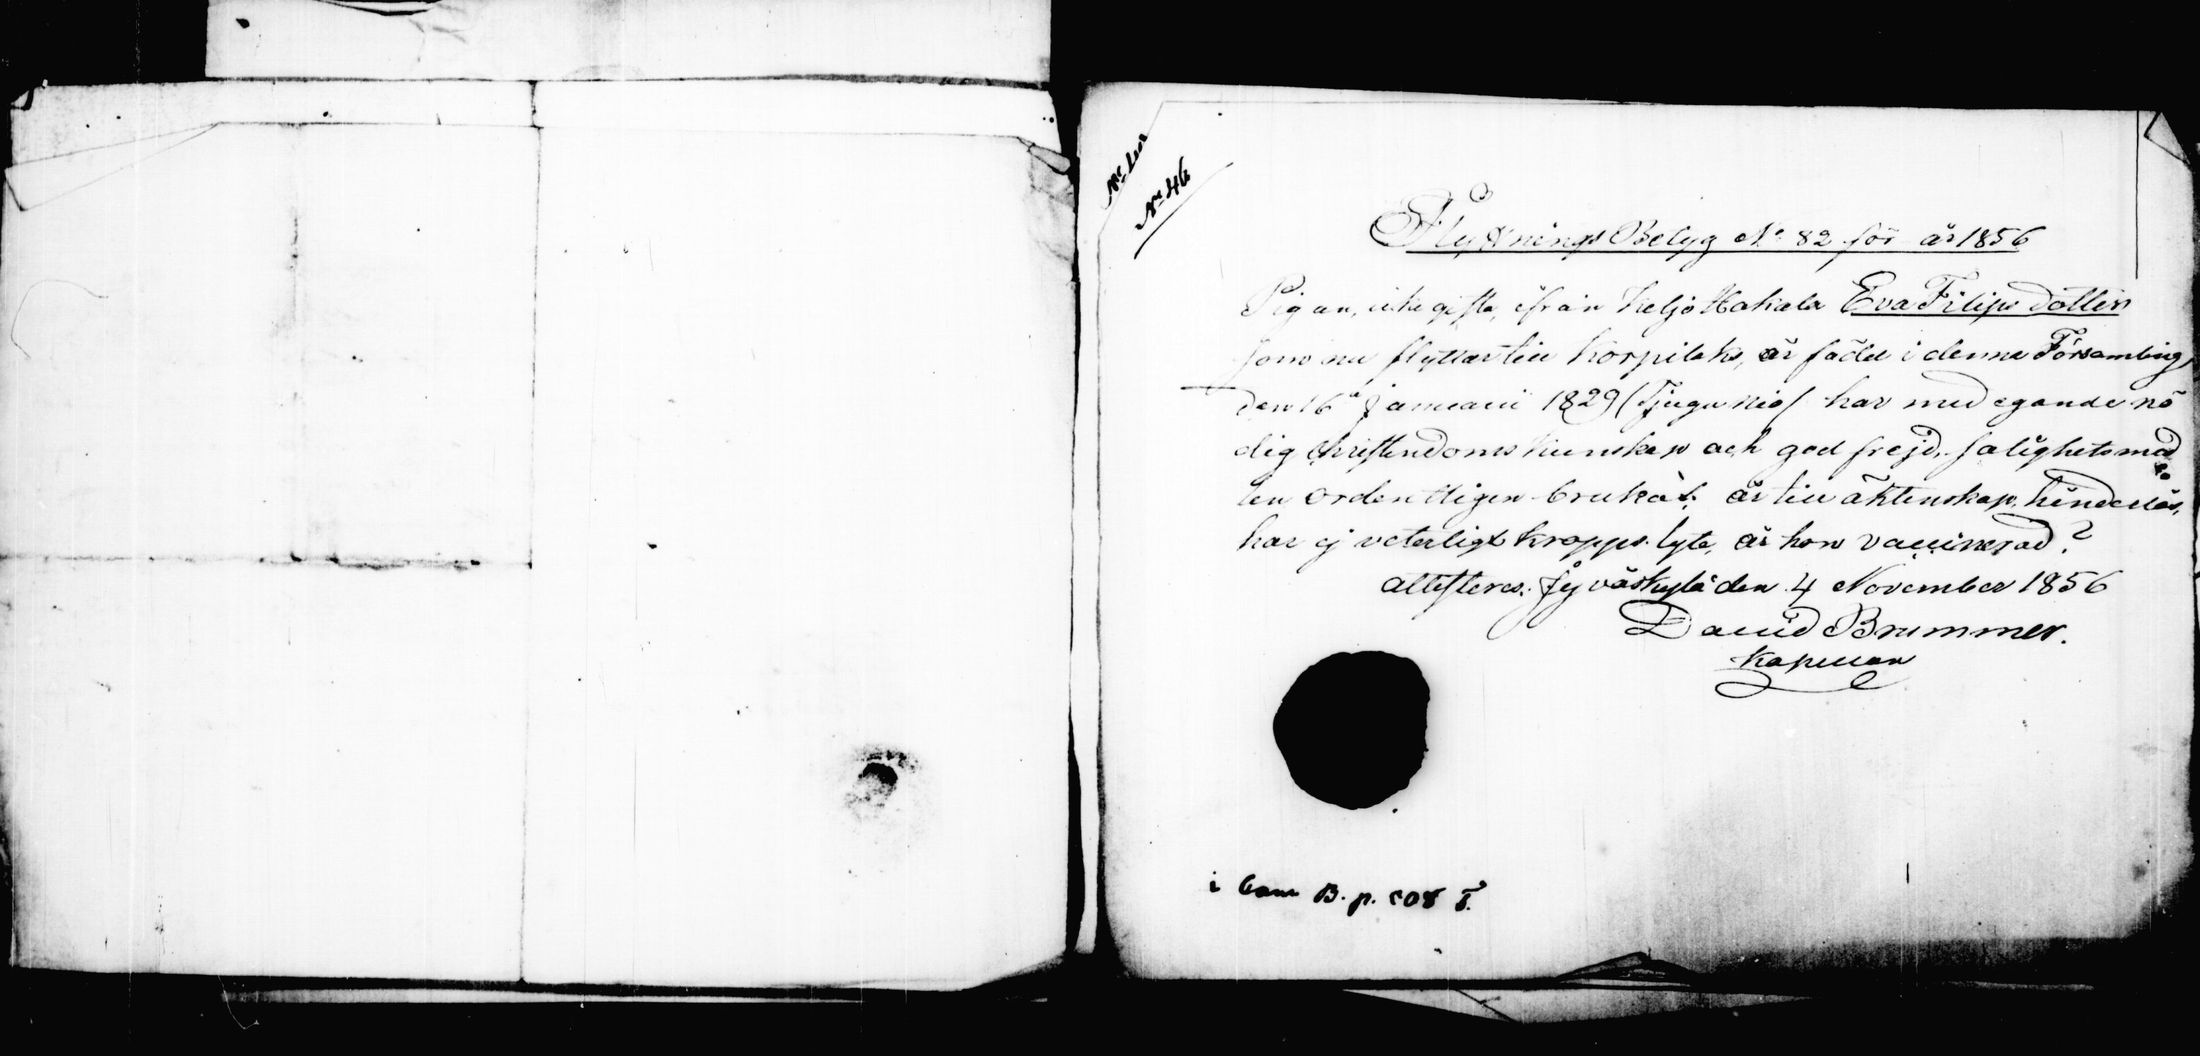 No 46
Flyttnings Belyg No 82 för år 1856
Pigan, icke gifta, ifrån Keljo Hakala Eva Filips dotter
som nu flyttar till Korpilaks, är född i denna Församling
den 16 Januarii 1829 (Tjugu nio) har med egande nö
dig Christendoms kunskap och god frejd, salighets med
len ordentligen brukat, är till äktenskap hinderlös,
har ej veterligt kropps lyte, är hon vaccinerad?
attesteras. Jyväskylä den 4 November 1856
David Brummer.
Kapellan
i B. p. 508 T.